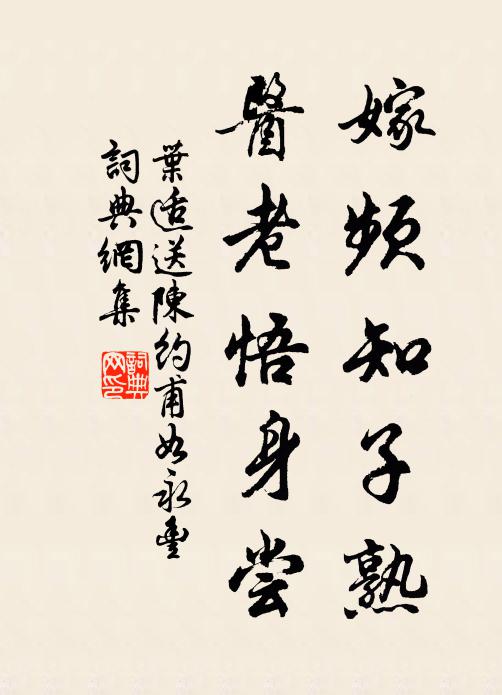 嫁頻知子熟
醫老悟身嘗
葉適送陳約甫如永豐
詞典網集
詞典
网印